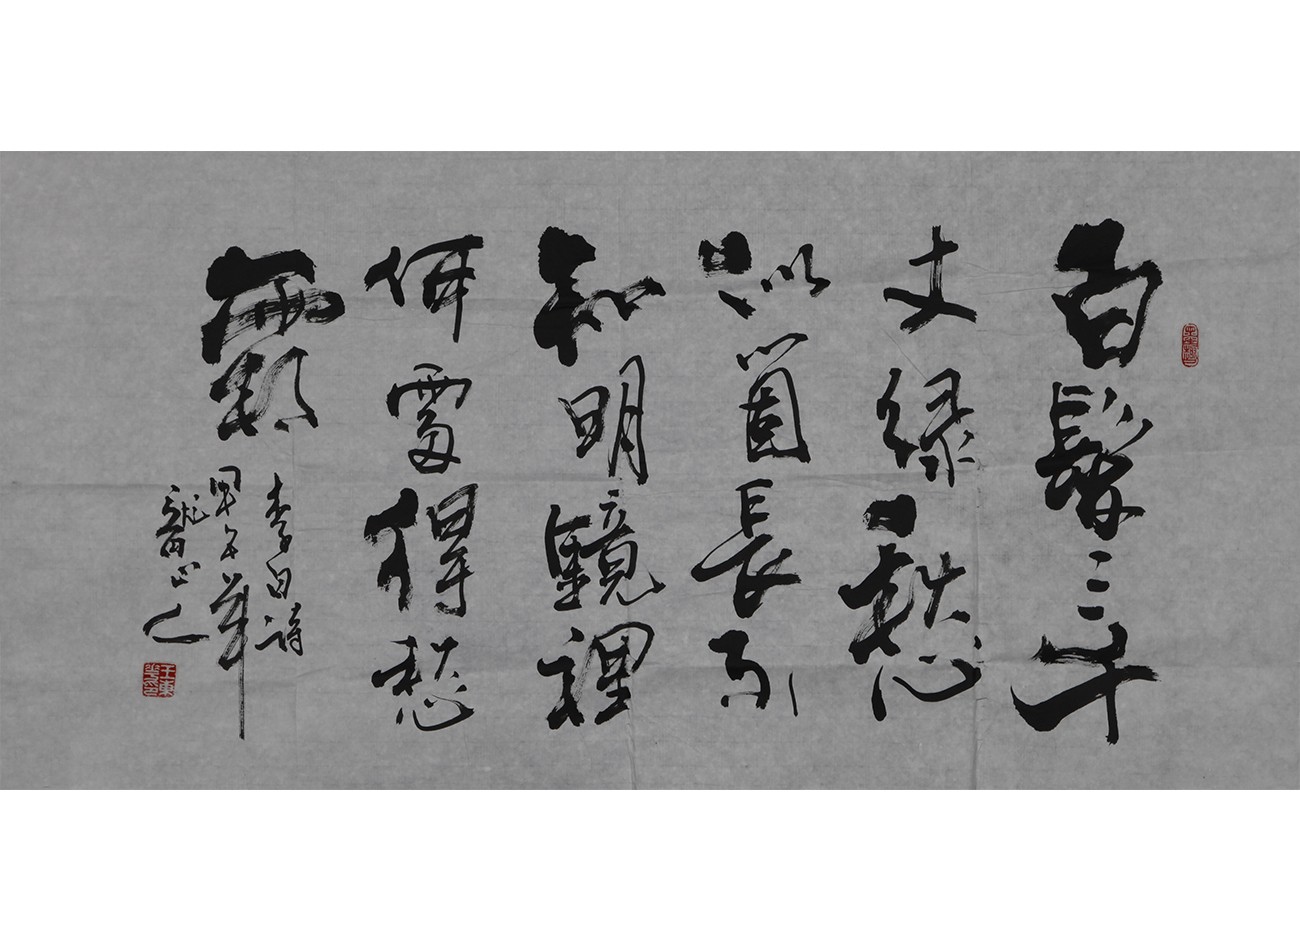 白髮三千
丈緣愁
似箇長不
知明鏡裡
何處得愁
霜
李白詩
甲午
山人
王東